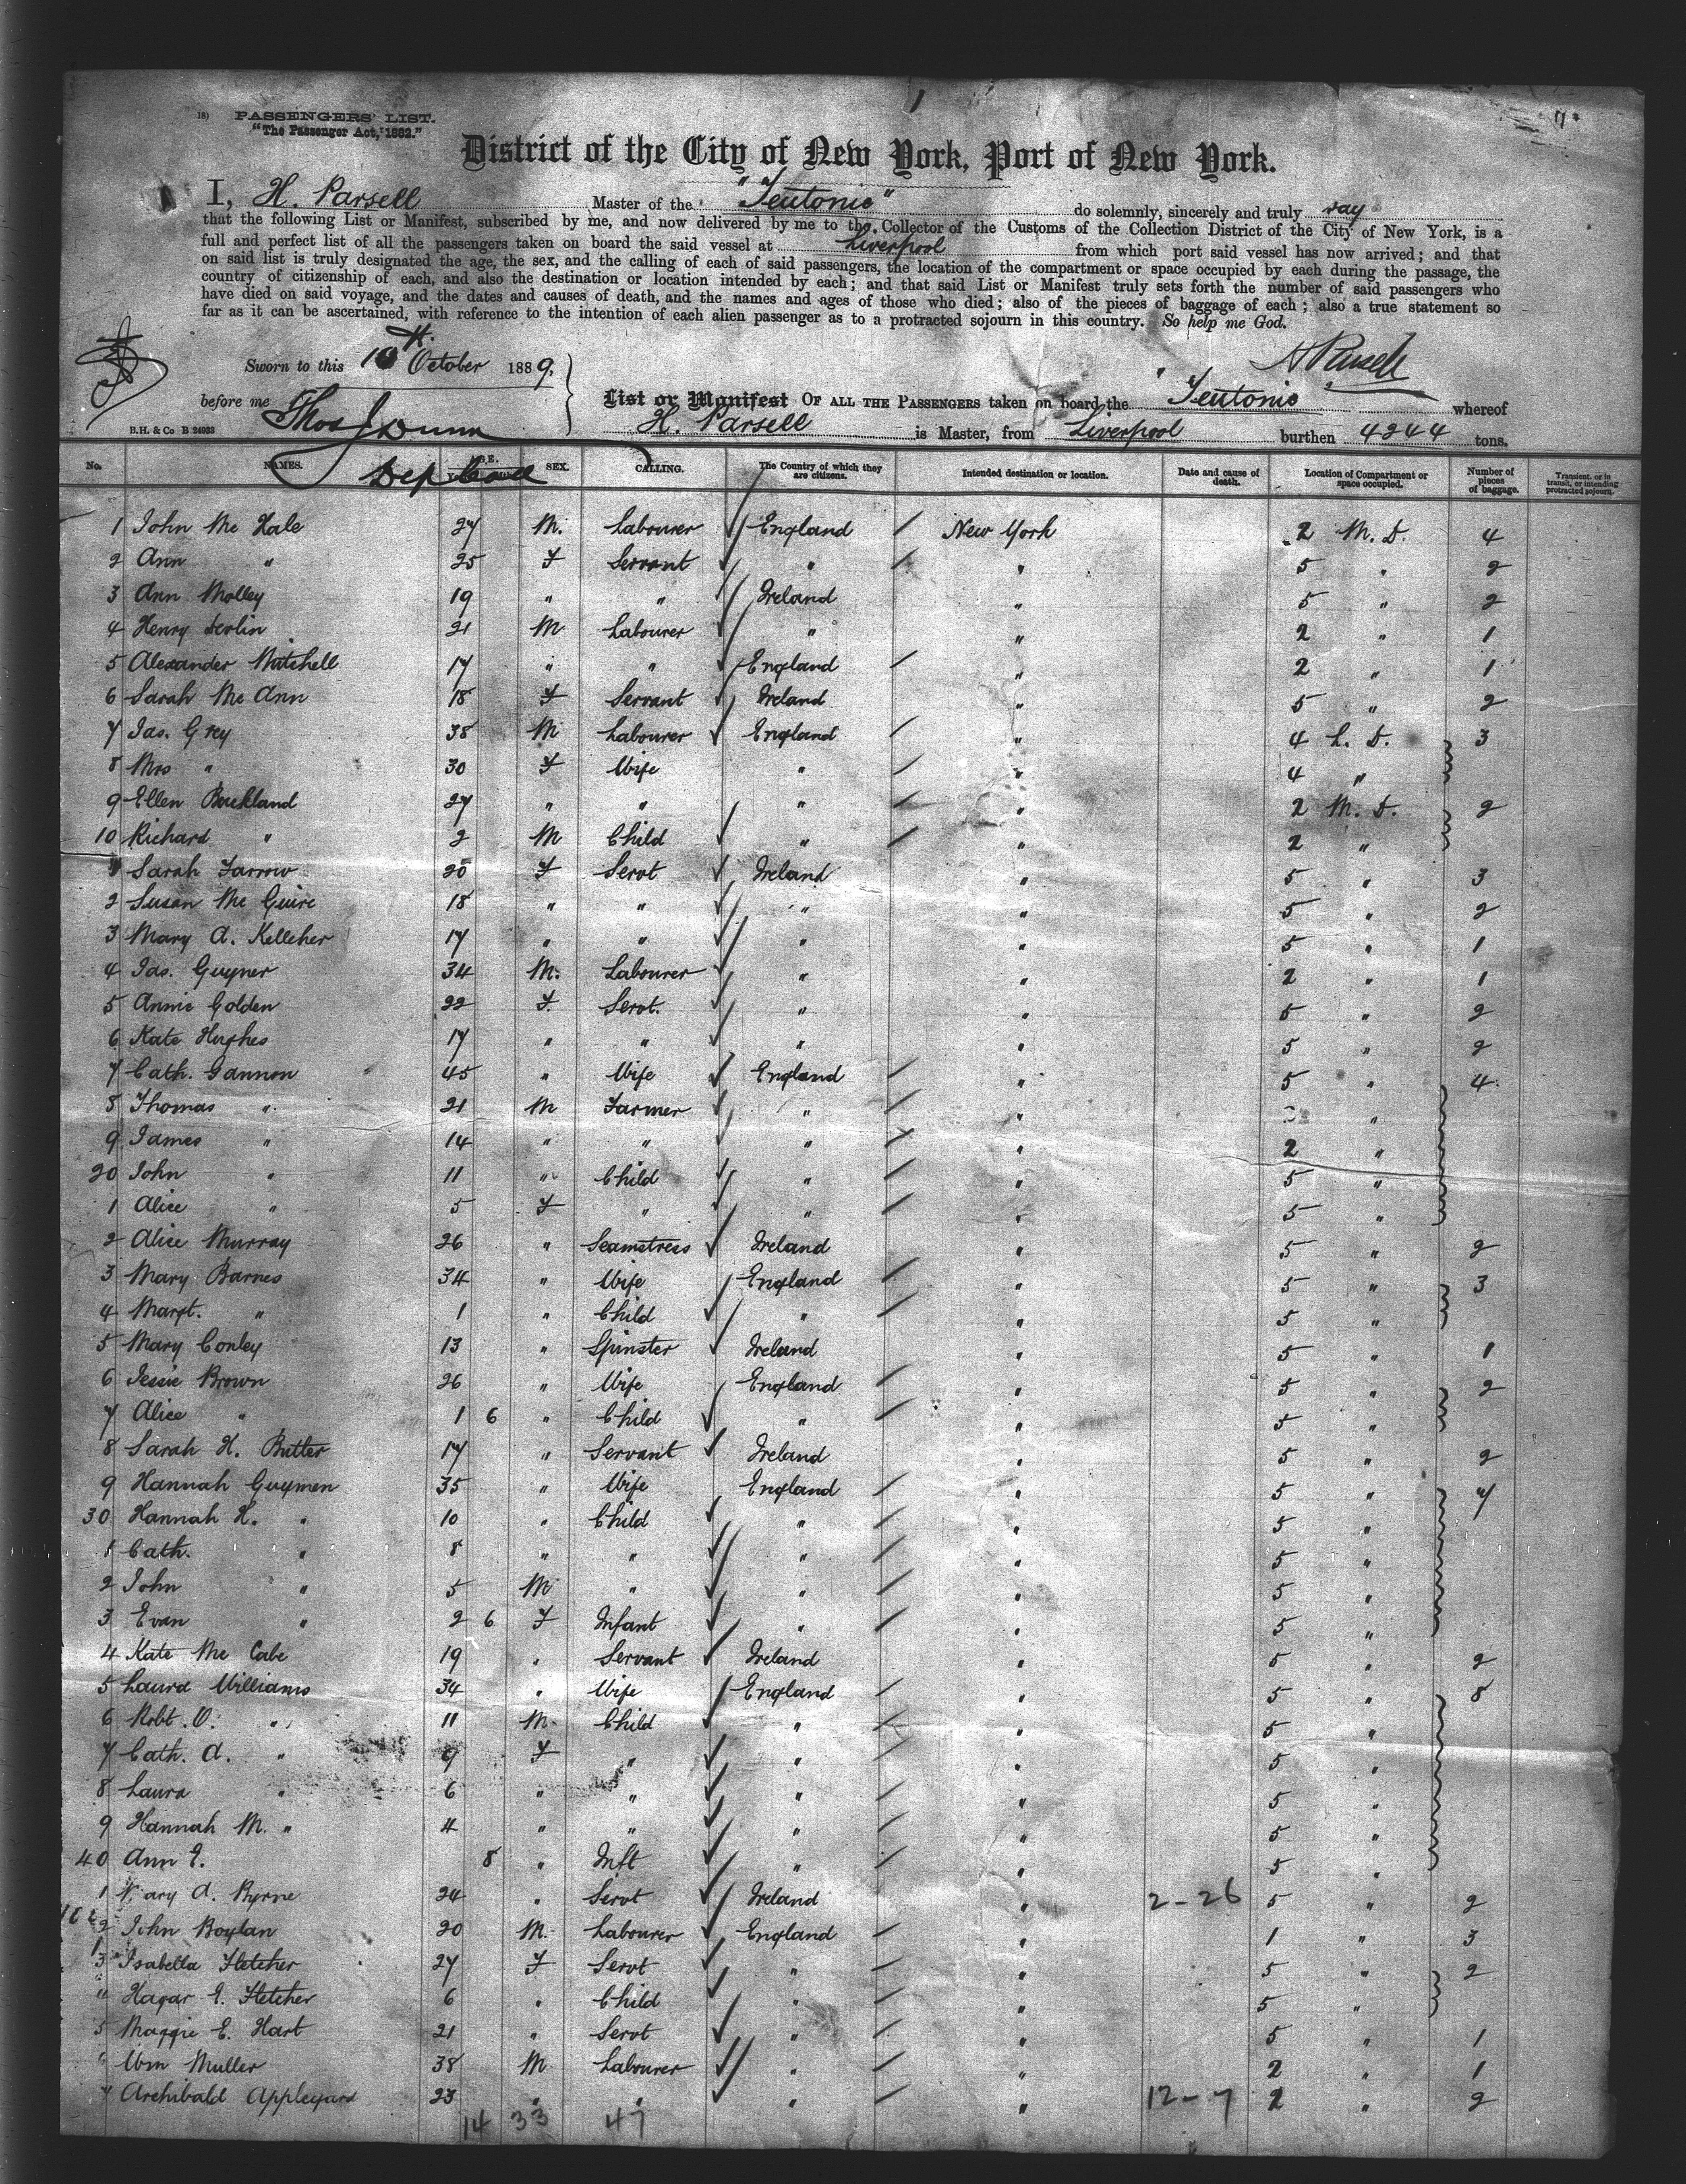 18) PASSENGERS' LIST.
"The Passenger Act, 1882."
District of the City of New York, Port of New York.
I, H. Parsell Master of the "Teutonic" do solemnly, sincerely and truly say
that the following List or Manifest, subscribed by me, and now delivered by me to the Collector of the Customs of the Collection District of the City of New York, is a
full and perfect list of all the passengers taken on board the said vessel at Liverpool from which port said vessel has now arrived; and that
on said list is truly designated the age, the sex, and the calling of each of said passengers, the location of the compartment or space occupied by each during the passage, the
country of citizenship of each, and also the destination or location intended by each; and that said List or Manifest truly sets forth the number of said passengers who
have died on said voyage, and the dates and causes of death, and the names and ages of those who died; also of the pieces of baggage of each; also a true statement so
far as it can be ascertained, with reference to the intention of each alien passenger as to a protracted sojourn in this country. So help me God.
Sworn to this 10th October 1889, H Parsell
before me Thos J Dunn
Dep Coll
List or Manifest OF ALL THE PASSENGERS taken on board the "Teutonic" whereof
B.H. & Co B 24933 H. Parsell is Master, from Liverpool burthen 4244 tons.
No. NAMES. AGE. SEX. CALLING. The Country of which they are citizens. Intended destination or location. Date and cause of death. Location of Compartment or space occupied. Number of pieces of baggage. Transient, or in transit, or intending protracted sojourn.
1 John Mc Hale 27 M. Labourer England New York 2 M. D. 4
2 Ann " 25 F Servant " " 5 " 2
3 Ann Molley 19 " " Ireland " 5 " 2
4 Henry Devlin 21 M Labourer " " 2 " 1
5 Alexander Mitchell 17 " " England " 2 " 1
6 Sarah Mc Ann 18 F Servant Ireland " 5 " 2
7 Jas. Grey 38 M Labourer England " 4 L. D. 3
8 Mrs " 30 F Wife " " 4 "
9 Ellen Buckland 27 " " " " 2 M. D. 2
10 Richard " 2 M Child " " 2 "
1 Sarah Farrow 20 F Servt Ireland " 5 " 3
2 Susan Mc Guire 18 " " " " 5 " 2
3 Mary A. Kelleher 17 " " " " 5 " 1
4 Jas. Guyner 34 M. Labourer " " 2 " 1
5 Annie Golden 22 F. Servt. " " 5 " 2
6 Kate Hughes 17 " " " " 5 " 2
7 Cath. Gannon 45 " Wife England " 5 " 4
8 Thomas " 21 M Farmer " " "
9 James " 14 " " " " 2 "
20 John " 11 " Child " " 5 "
1 Alice " 5 F " " " 5 "
2 Alice Murray 26 " Seamstress Ireland " 5 " 2
3 Mary Barnes 34 " Wife England " 5 " 3
4 Margt. " 1 " Child " " 5 "
5 Mary Conley 13 " Spinster Ireland " 5 " 1
6 Jessie Brown 26 " Wife England " 5 " 2
7 Alice " 1 6 " Child " " 5 "
8 Sarah H. Butler 17 " Servant Ireland " 5 " 2
9 Hannah Guymen 35 " Wife England " 5 " 7
30 Hannah H. " 10 " Child " " 5 "
1 Cath. " 8 " " " " 5 "
2 John " 5 M " " " 5 "
3 Evan " 2 6 F Infant " " 5 "
4 Kate Mc Cabe 19 " Servant Ireland " 5 " 2
5 Laura Williams 34 " Wife England " 5 " 8
6 Robt. O. " 11 M. Child " " 5 "
7 Cath. A. " 9 F " " " 5 "
8 Laura " 6 " " " " 5 "
9 Hannah M. " 4 " " " " 5 "
40 Ann E. 8 " Inft " " 5 "
1 Mary A. Byrne 24 " Servt Ireland " 2-26 5 " 2
2 John Boylan 20 M. Labourer England " 1 " 3
3 Isabella Fletcher 27 F Servt " " 5 " 2
" Hagar E. Fletcher 6 " Child " " 5 "
5 Maggie E. Hart 21 " Servt " " 5 " 1
" Wm Muller 38 M Labourer " " 2 " 1
7 Archibald Appleyard 23 " " " " 12-7 2 " 2
14 33 47